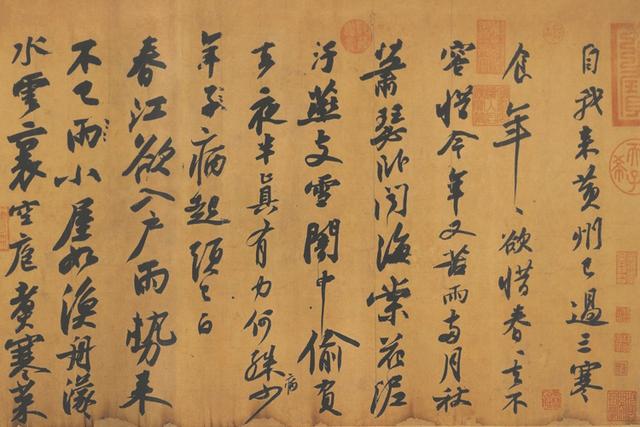 自我来黄州已過三寒
食年〻欲惜春〻去不
容惜今年又苦雨兩月秋
蕭瑟卧聞海棠花泥
汙燕支雪闇中偷負
去夜半真有力何殊病少
年子病起須已白
春江欲入戶雨勢来
不已雨小屋如漁舟濛〻
水雲裏空庖煮寒菜